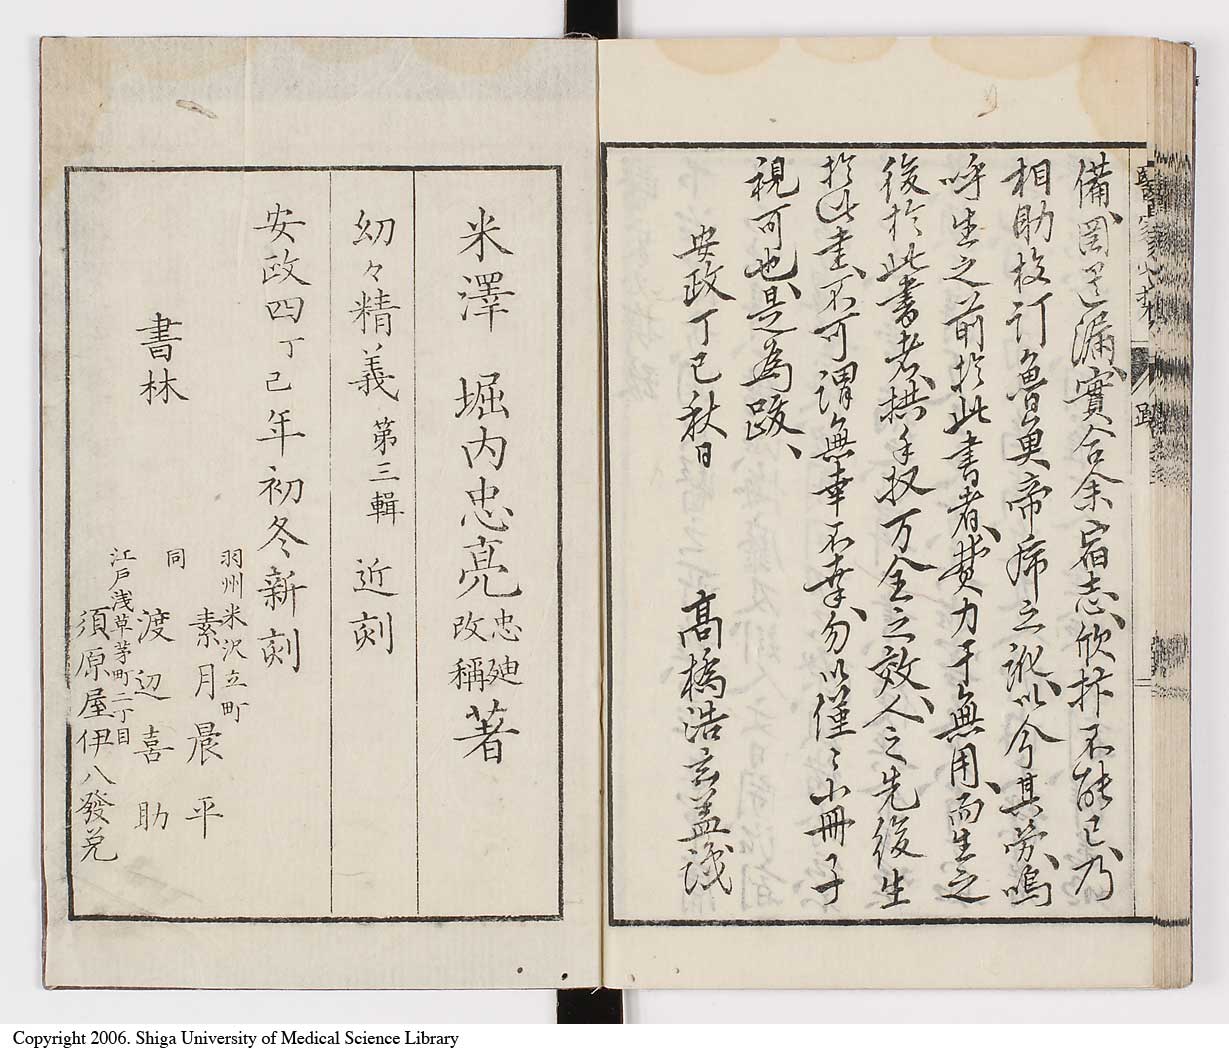 備、罔遺漏、實合余宿志、欣抃不能已、乃
相助校訂魯臭帝席之訛、以今其労、嗚
呼生之前於此書者、費力于無用、而生之
後於此書者、拱手収万全之效、人之先後生
於此書、不可謂無幸不幸、勿以僅〻小冊子
視可也、是為跋、
安政丁巳秋日
高橋浩玄盖識
米澤 堀内忠亮 忠廸改稱 著
幼々精義 第三輯 近刻
安政四丁己年初冬新刻
書林
羽州米沢立町
素月晨平
同
渡辺喜助
江戸浅草茅町二丁目
須原屋伊八發兌
Copyright 2006. Shiga University of Medical Science Library